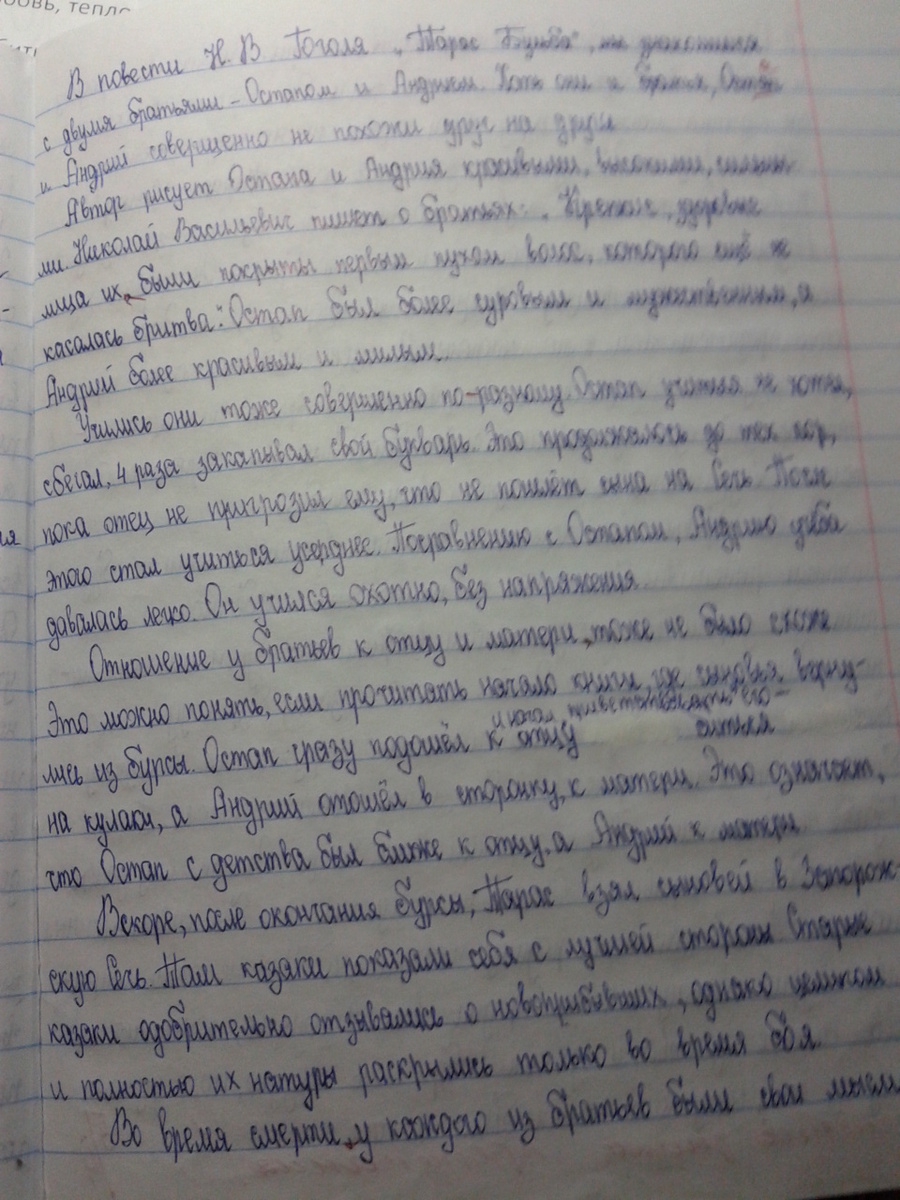 овь, тепло
В повести Н. В Гоголя „Тарас Бульба", мы знакомимся
с двумя братьями - Остапом и Андрием. Хоть они и братья, Остап
и Андрий совершенно не похожи друг на друга
Автор рисует Остапа и Андрия красивыми, высокими, сильны-
ми. Николай Васильевич пишет о братьях: „Крепкие, здоровые
лица их, были покрыты первым пухом волос, которого ещё не
касалась бритва". Остап был более суровым и мужественным, а
Андрий более красивым и милым.
Учились они тоже совершенно по-разному. Остап учиться не хотел,
сбегал, 4 раза закапывал свой букварь. Это продолжалось до тех пор,
пока отец не пригрозил ему, что не пошлёт сына на Сечь. После
этого стал учиться усерднее. Посравнению с Остапом, Андрию учёба
давалась легко. Он учился охотно, без напряжения.
Отношение у братьев к отцу и матери, тоже не было схоже
Это можно понять, если прочитать начало книги, где сыновья верну-
лись из бурсы. Остап сразу подошёл к отцу и начал приветствовать его - биться
на кулаки, а Андрий отошёл в сторонку, к матери. Это означает,
что Остап с детства был ближе к отцу, а Андрий к матери
Вскоре, после окончания бурсы, Тарас взял сыновей в Запорож-
скую Сечь. Там казаки показали себя с лучшей стороны Старые
казаки одобрительно отзывались о новоприбывших, однако целиком
и полностью их натуры раскрылись только во время боя.
Во время смерти, у каждого из братьев были свои мысли